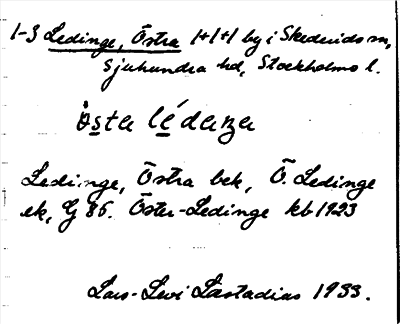 1-3 Ledinge, Östra 1+1+1 by i Skederids sn,
Sjuhundra hd, Stockholms l.
östa lédanga
Ledinge, Östra bek, Ö. Ledinge
ek, G 86. Öster-Ledinge kb 1923
Lars-Levi Læstadius 1933.